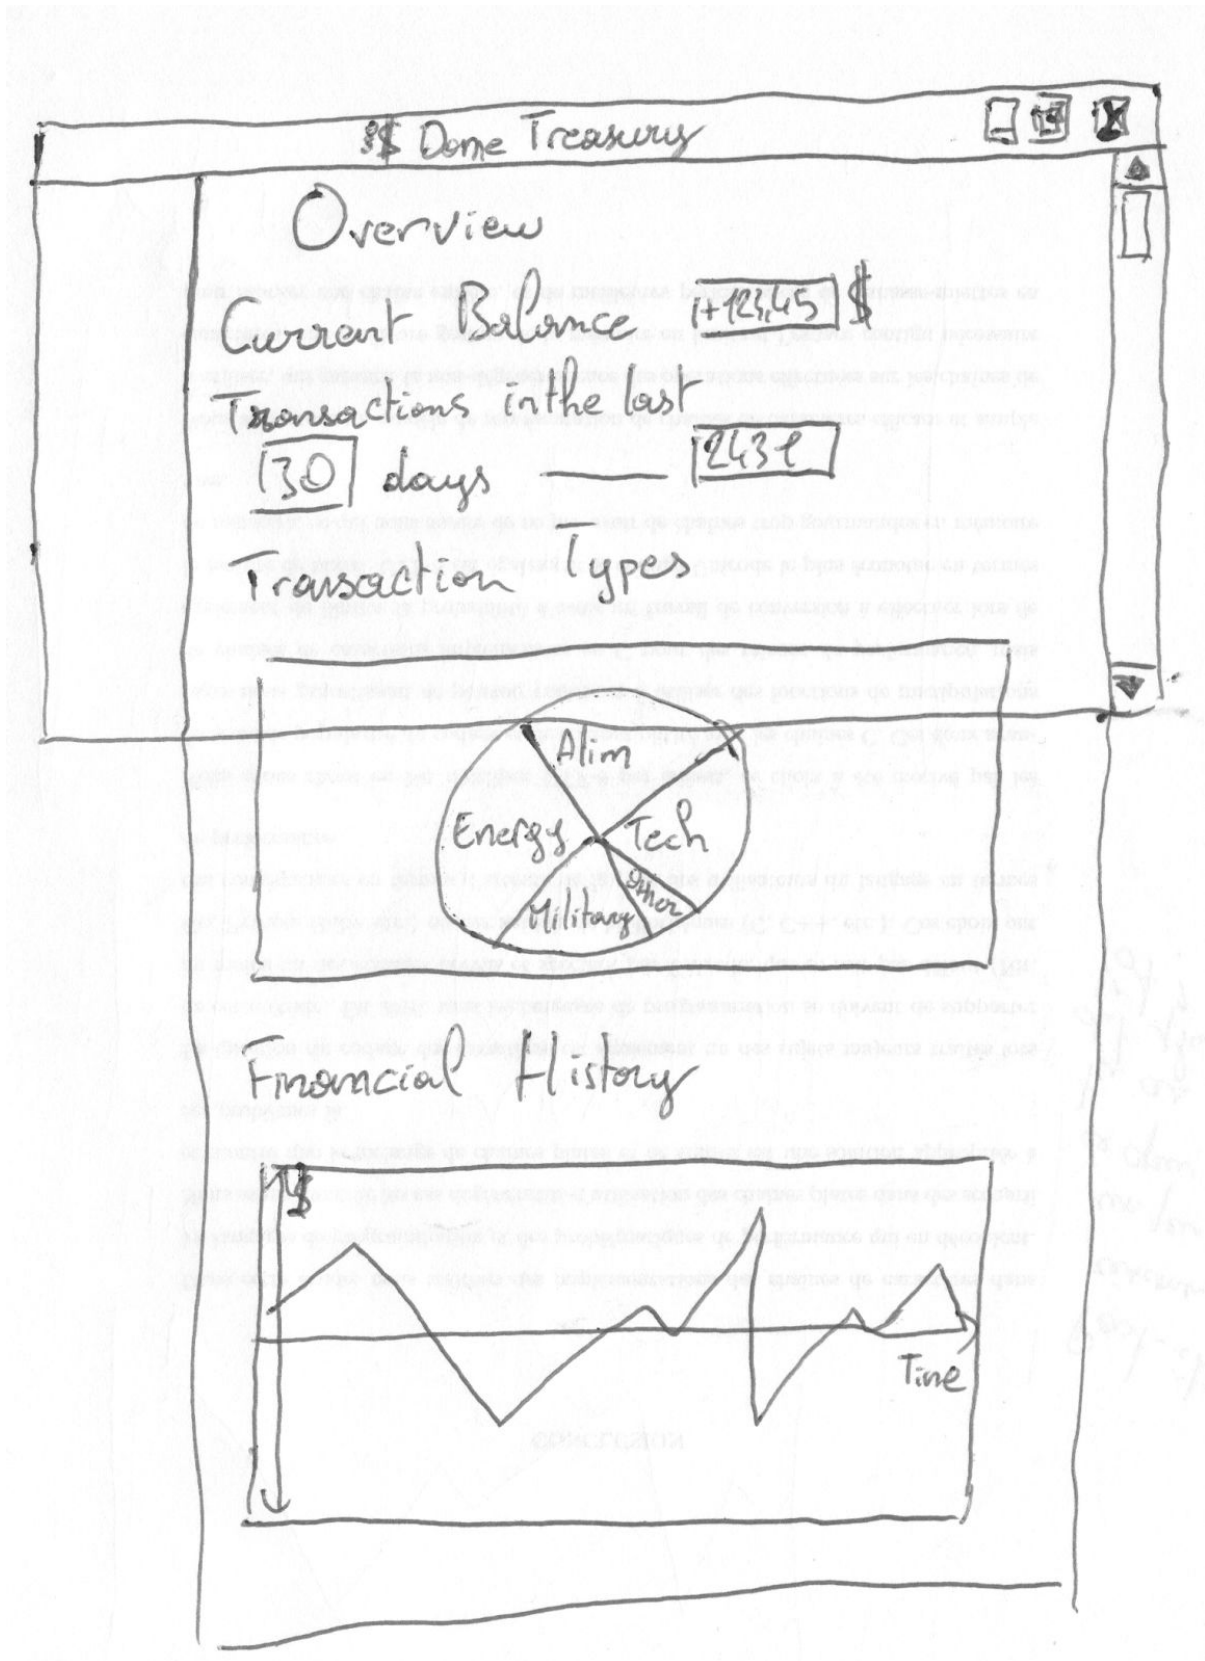 $ Dome Treasury
Overview
Current Balance +123,45 $
Transactions in the last
30 days
Transaction Types
Alim
Energy Tech
Military Other
Financial History
$
Time